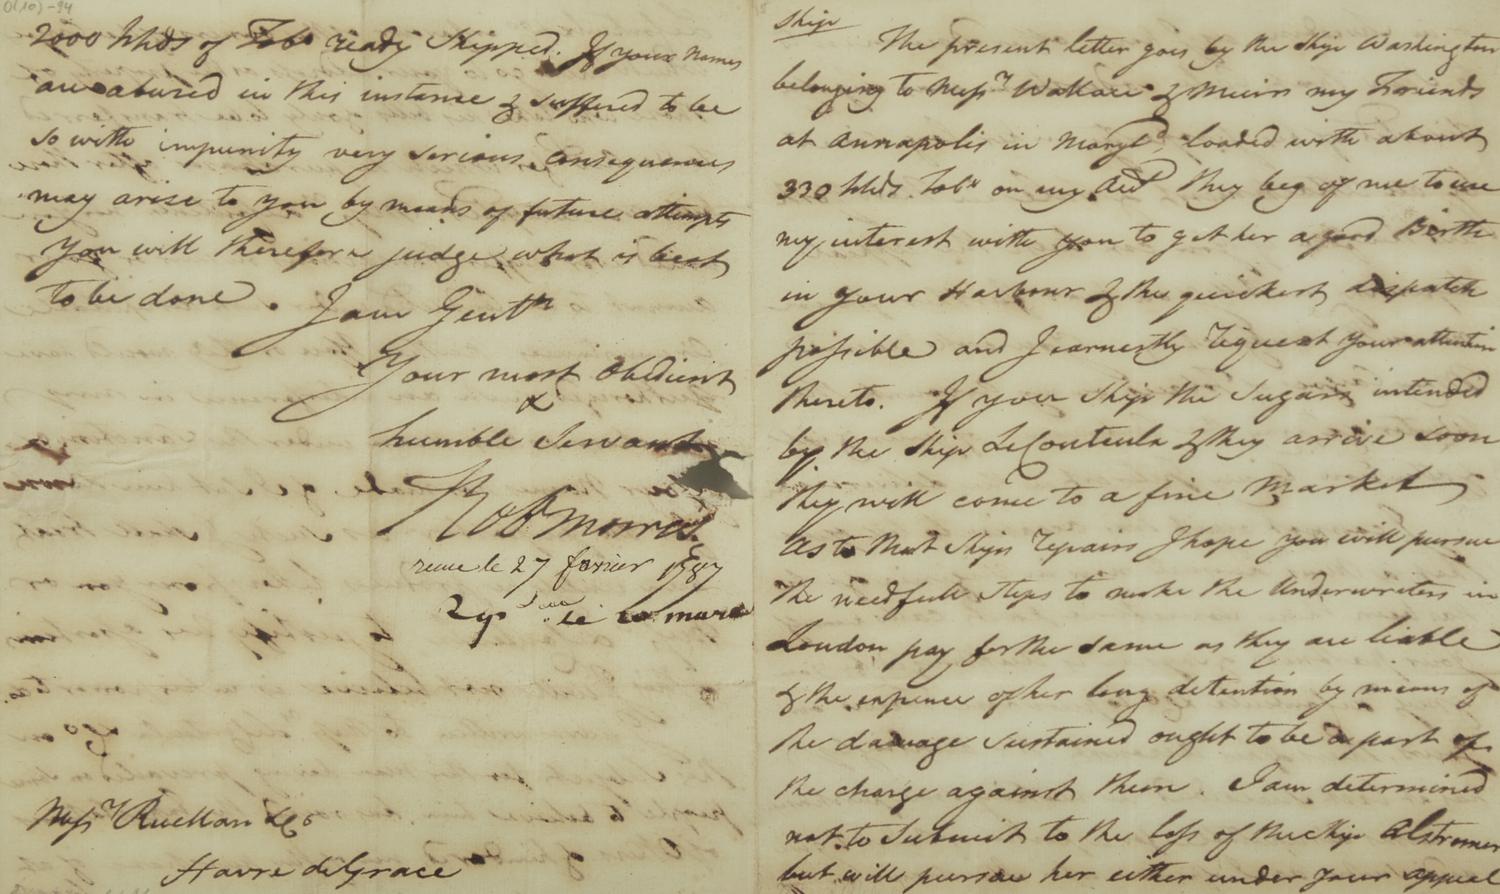 2000 hhds of Tobo ready Shipped. If your names
are abused in this instance & suffered to be
so with impunity very serious consequences
may arise to you by means of future attempts
You will therefore judge what is best
to be done. I am Gentn
Your most Obedient
&
humble Servant
Robt Morris
recue le 27 fevrier 1787
Rep le mars
Messrs Ruellan & Co
Havre de Grace
Ship
The present letter goes by the Ship Washington
belonging to Messrs Wallace & Muirs my Friends
at Annapolis in Maryld loaded with about
330 hhds. Tobo on my Acct They beg of me to use
my interest with you to get her a good Birth
in your Harbour & the quickest dispatch
possible and I earnestly request your attention
thereto. If you Ship the Sugars intended
by the Ship Le Couteulx & they arrive soon
they will come to a fine Market
As to that Ships repairs I hope you will pursue
the needfull steps to make the Underwriters in
London pay for the same as they are liable
& the expence of her long detention by means of
the damage sustained ought to be a part of
the charge against them. I am determined
not to Submit to the loss of the Ship Alstromer
but will pursue her either under your appeal